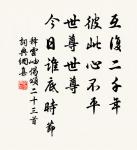 互復二千年
彼此心不平
世尊世尊
今日誰底時節
釋雲岫偈頌二十三首
詞典網集